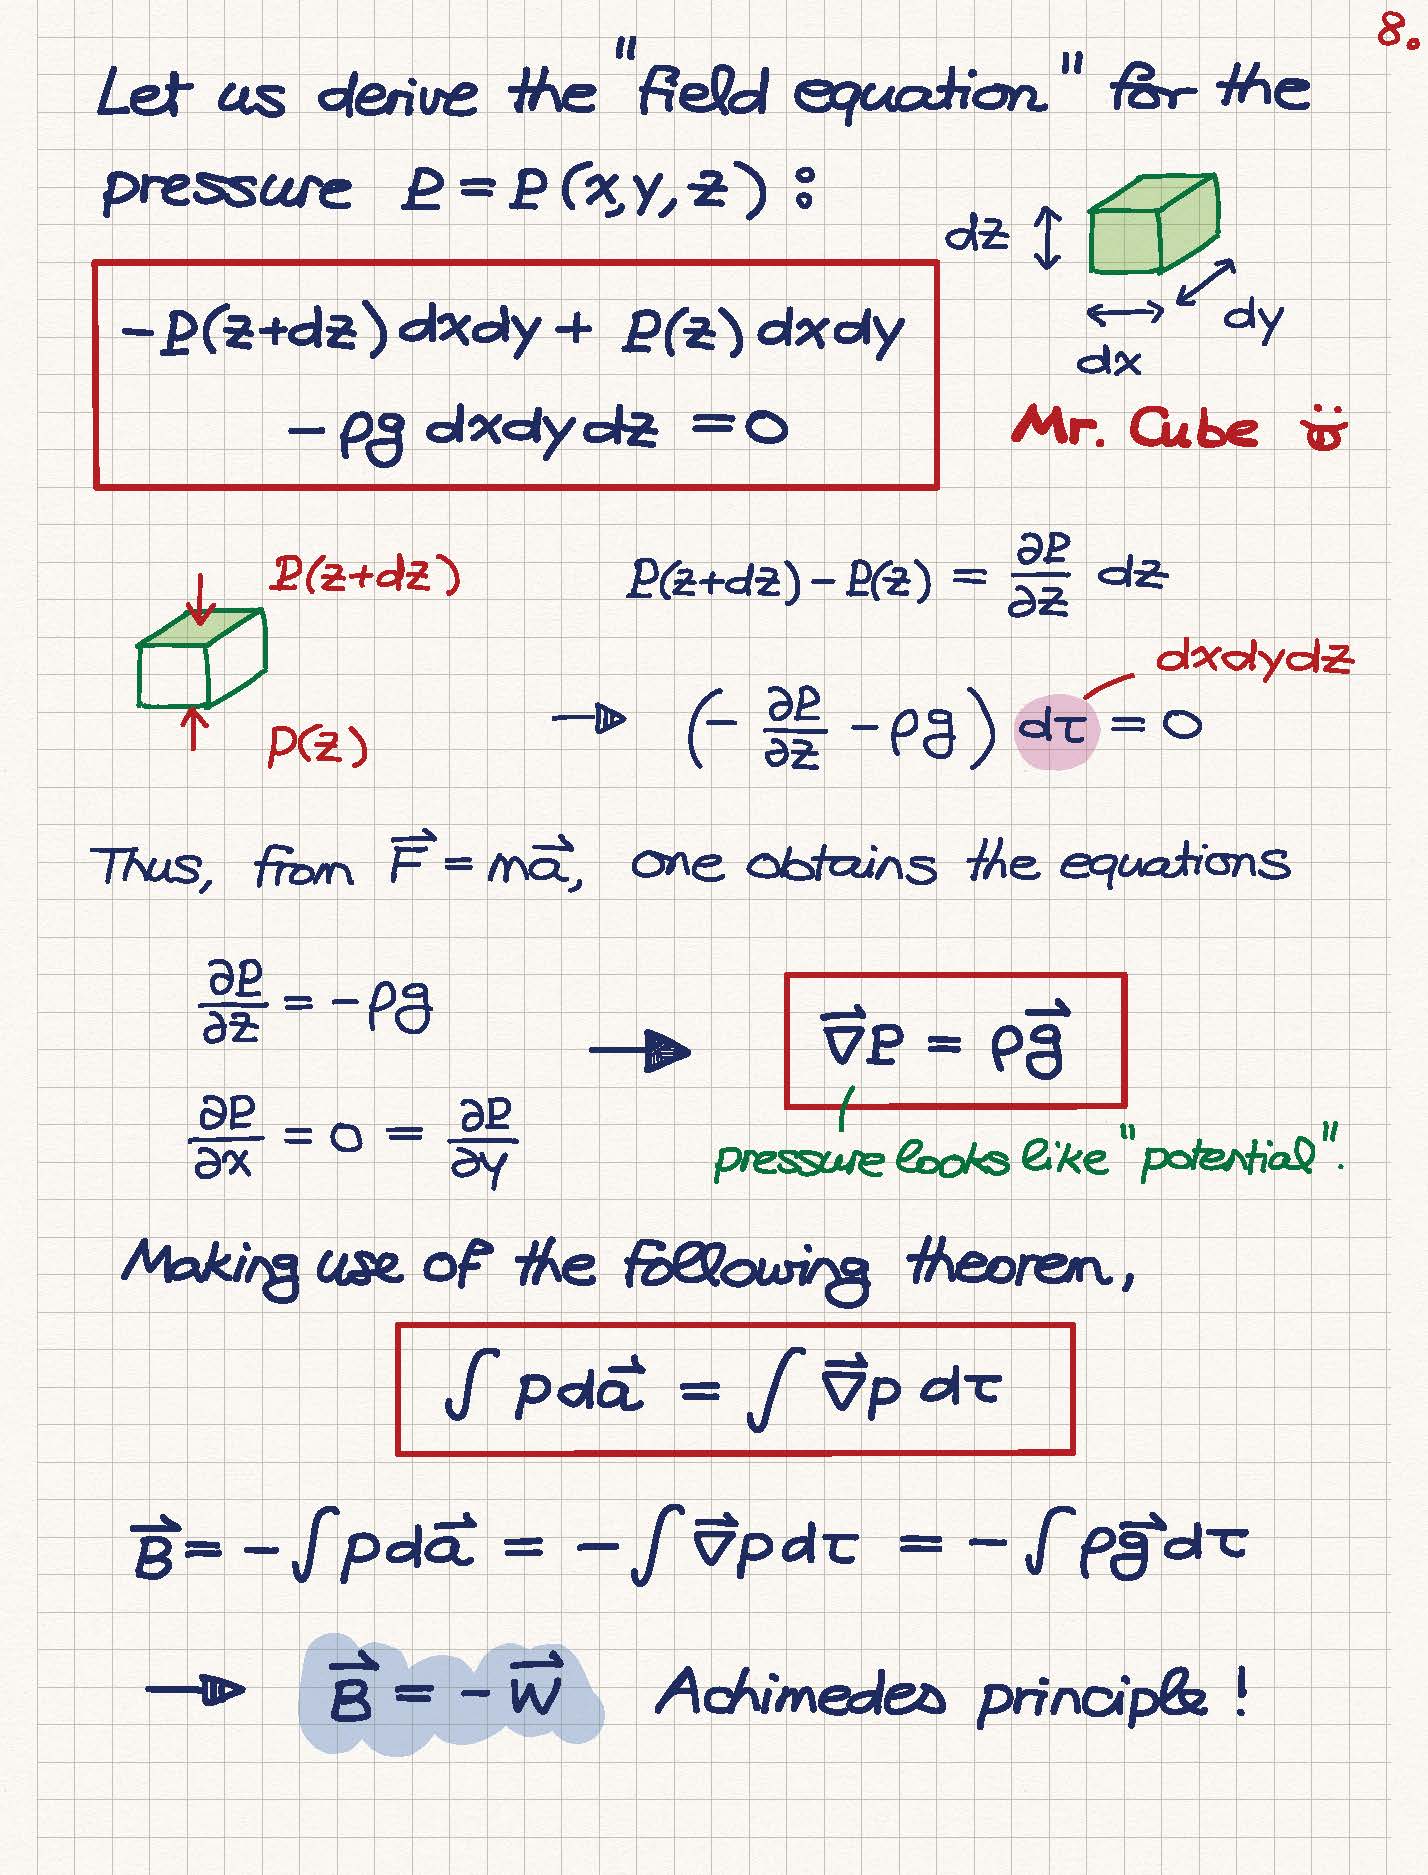 8.
Let us derive the "field equation" for the
pressure P = P(x,y,z) :
dz
dy
dx
Mr. Cube
-P(z+dz) dxdy + P(z) dxdy
-ρg dxdydz = 0
P(z+dz)
P(z+dz) - P(z) = ∂P/∂z dz
dxdydz
(- ∂P/∂z - ρg) dτ = 0
p(z)
Thus, from F⃗ = ma⃗, one obtains the equations
∂P/∂z = -ρg
∇⃗P = ρg⃗
∂P/∂x = 0 = ∂P/∂y
pressure looks like "potential".
Making use of the following theorem,
∫ p da⃗ = ∫ ∇⃗p dτ
B⃗ = -∫ p da⃗ = -∫ ∇⃗p dτ = -∫ ρg⃗ dτ
B⃗ = -W⃗ Achimedes principle !